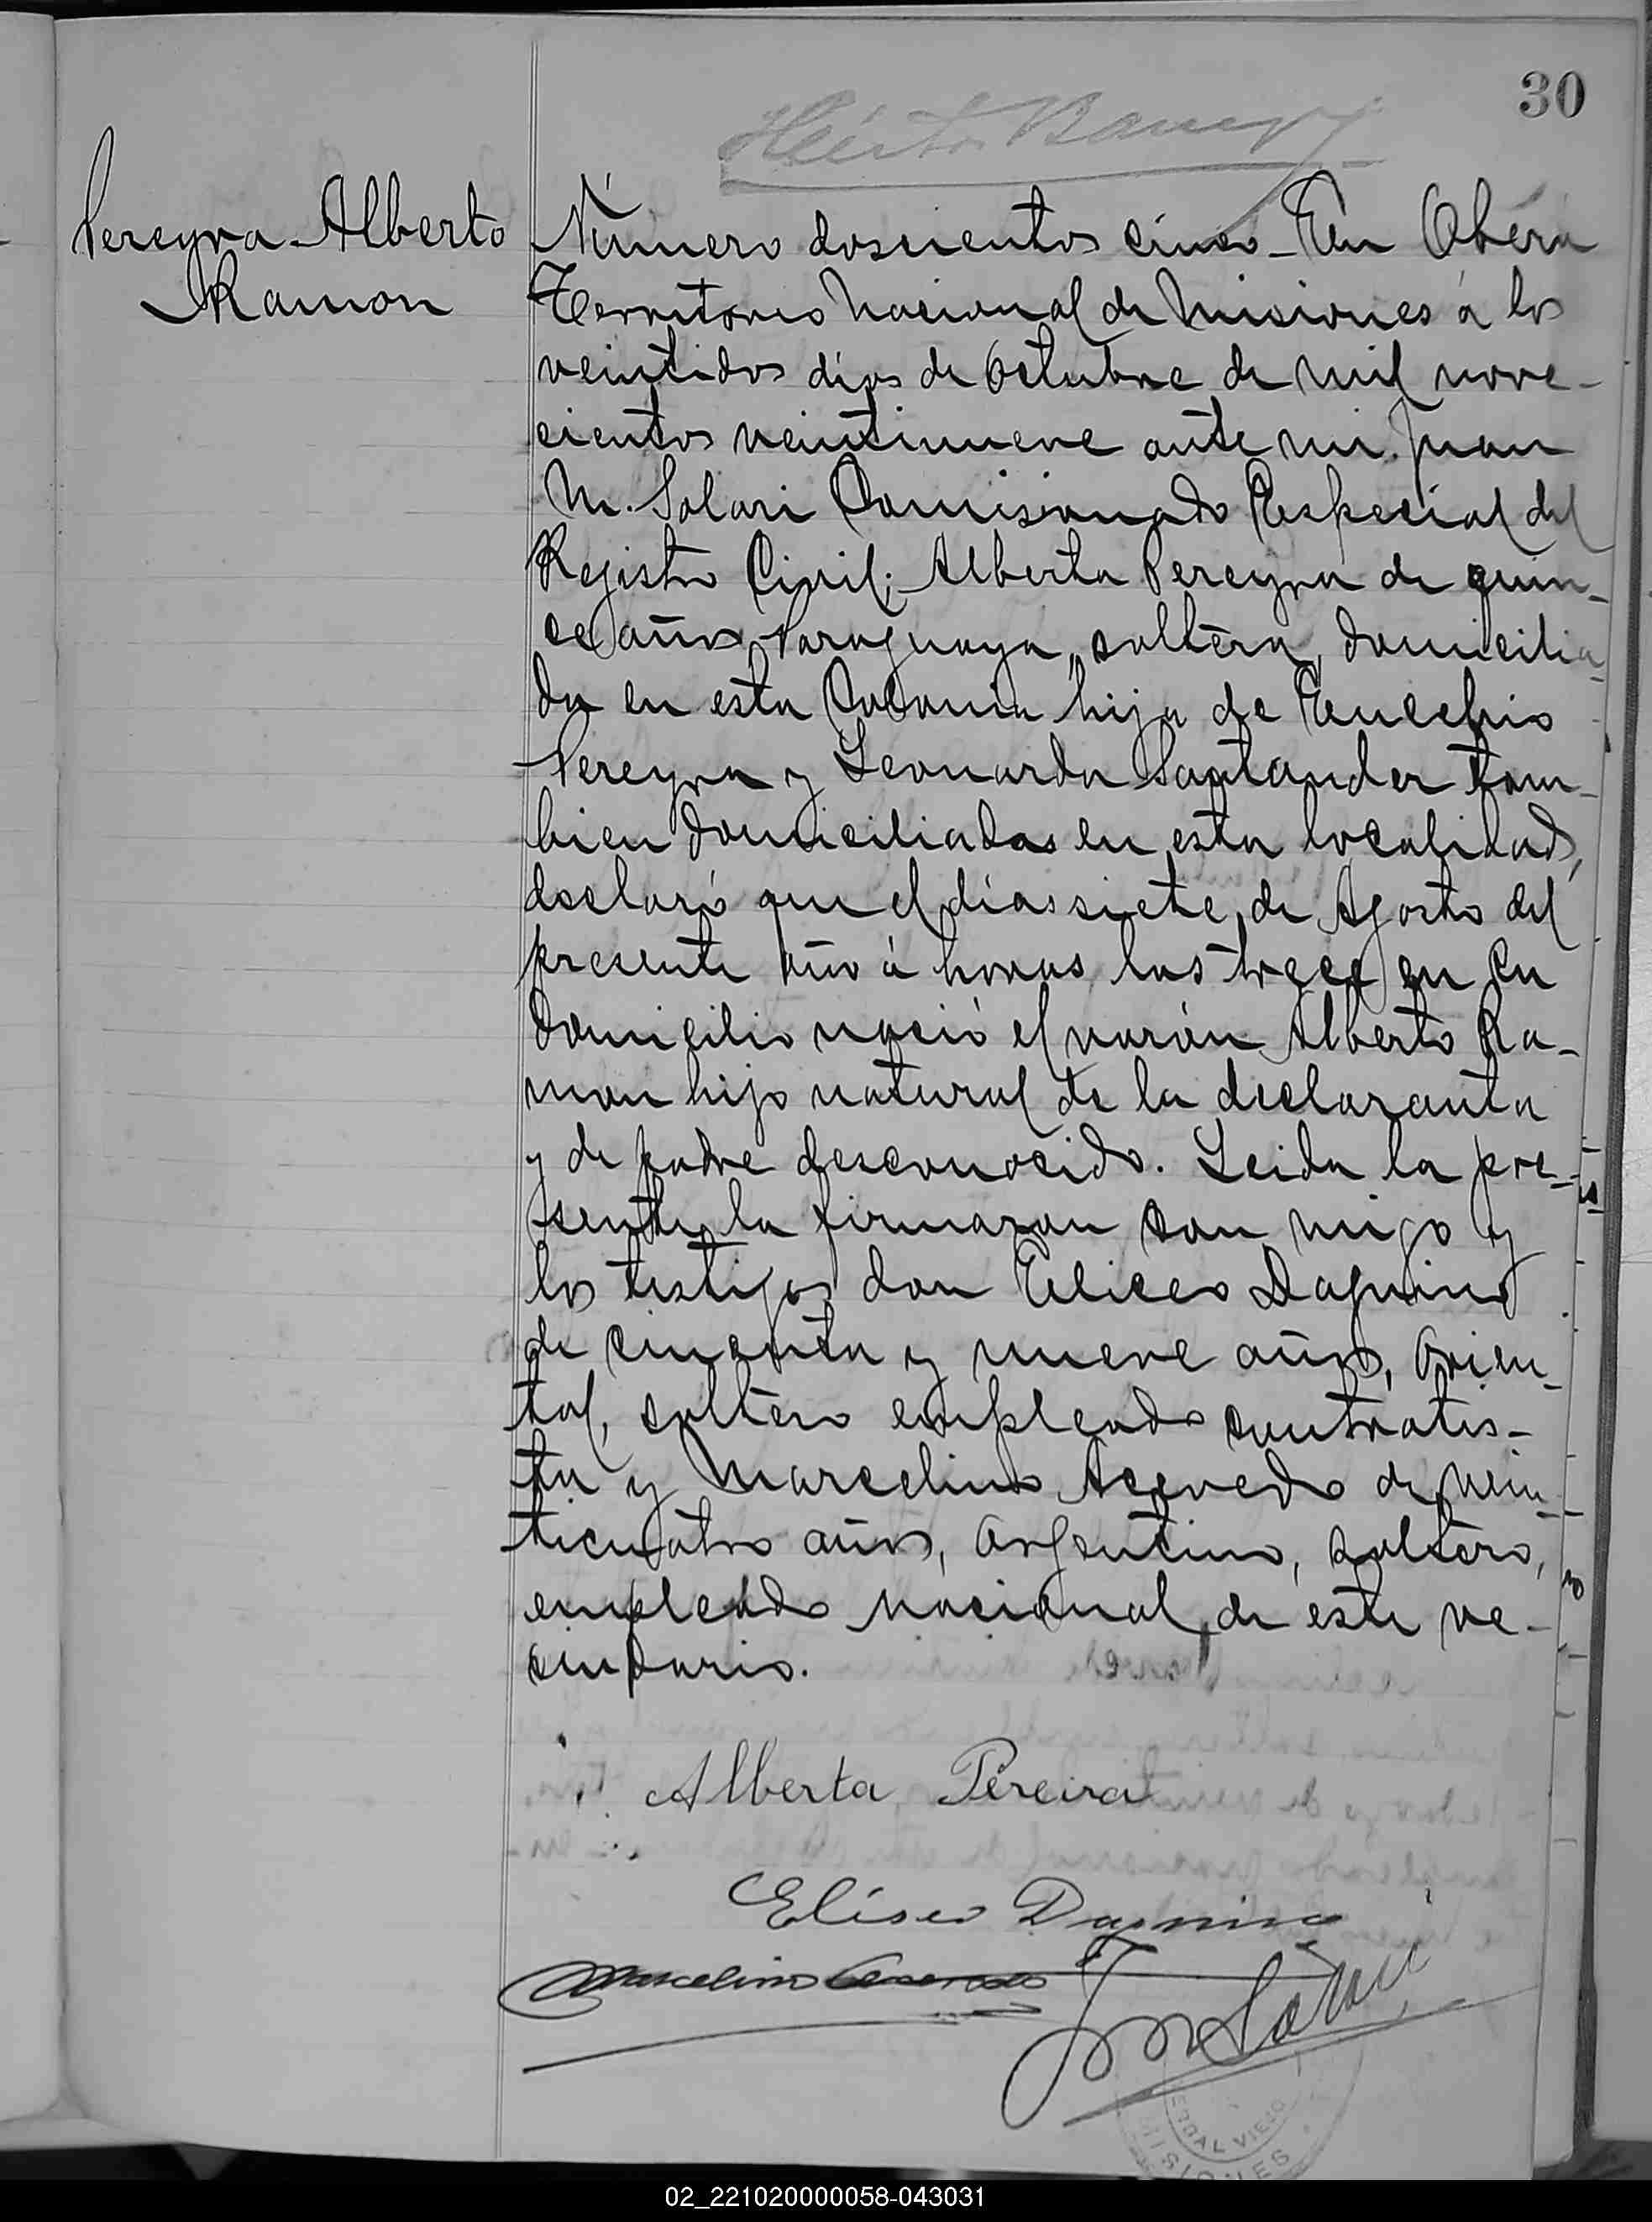 30
Pereyra Alberto
Ramon
Número doscientos cinco - En Oberá
Territorio Nacional de Misiones á los
veintidos dias de Octubre de mil nove-
cientos veintinueve ante mi Juan
M. Solari Comisionado Especial del
Registro Civil; Alberta Pereyra de quin-
ce años, Paraguaya, soltera, domicilia-
da en esta Colonia hija de
Pereyra y Leonarda Santander tam-
bien domiciliadas en esta localidad,
declaró que el dias siete de Agosto del
presente año á horas las trece en su
domicilio nació el varón Alberto Ra-
mon hijo natural de la declaranta
y de padre desconocido. Leida la pre-
sente la firmaron con migo y
los testigos don Eliceo Dagnino
de cincuenta y nueve años, Orien-
tal, soltero empleado contratis-
ta y Marcelino Acevedo de vein-
ticuatro años, Argentino, soltero,
empleado nacional de este ve-
cindario.
Alberta Pereira
Eliseo Dagnino
Marcelino Acevedo
J M Solari
ERBAL VIEJO
MISIONES
02_221020000058-043031